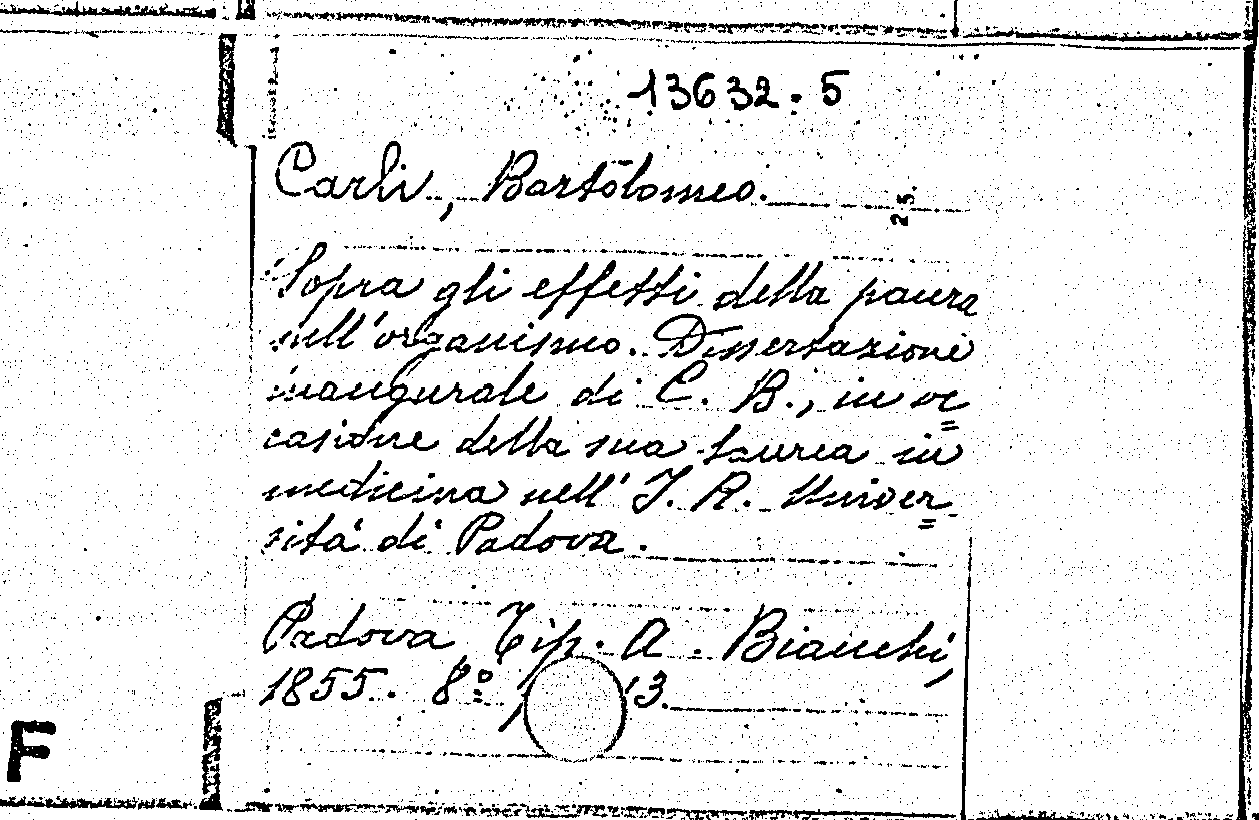 13632.5
Carli, Bartolomeo.
25.
Sopra gli effetti della paura
nell'organismo. Dissertazione
inaugurale di C. B., in oc=
casione della sua laurea in
medicina nell' I. R. Univer=
sità di Padova.
Padova Tip. A. Bianchi,
1855. 8º, 13.
F